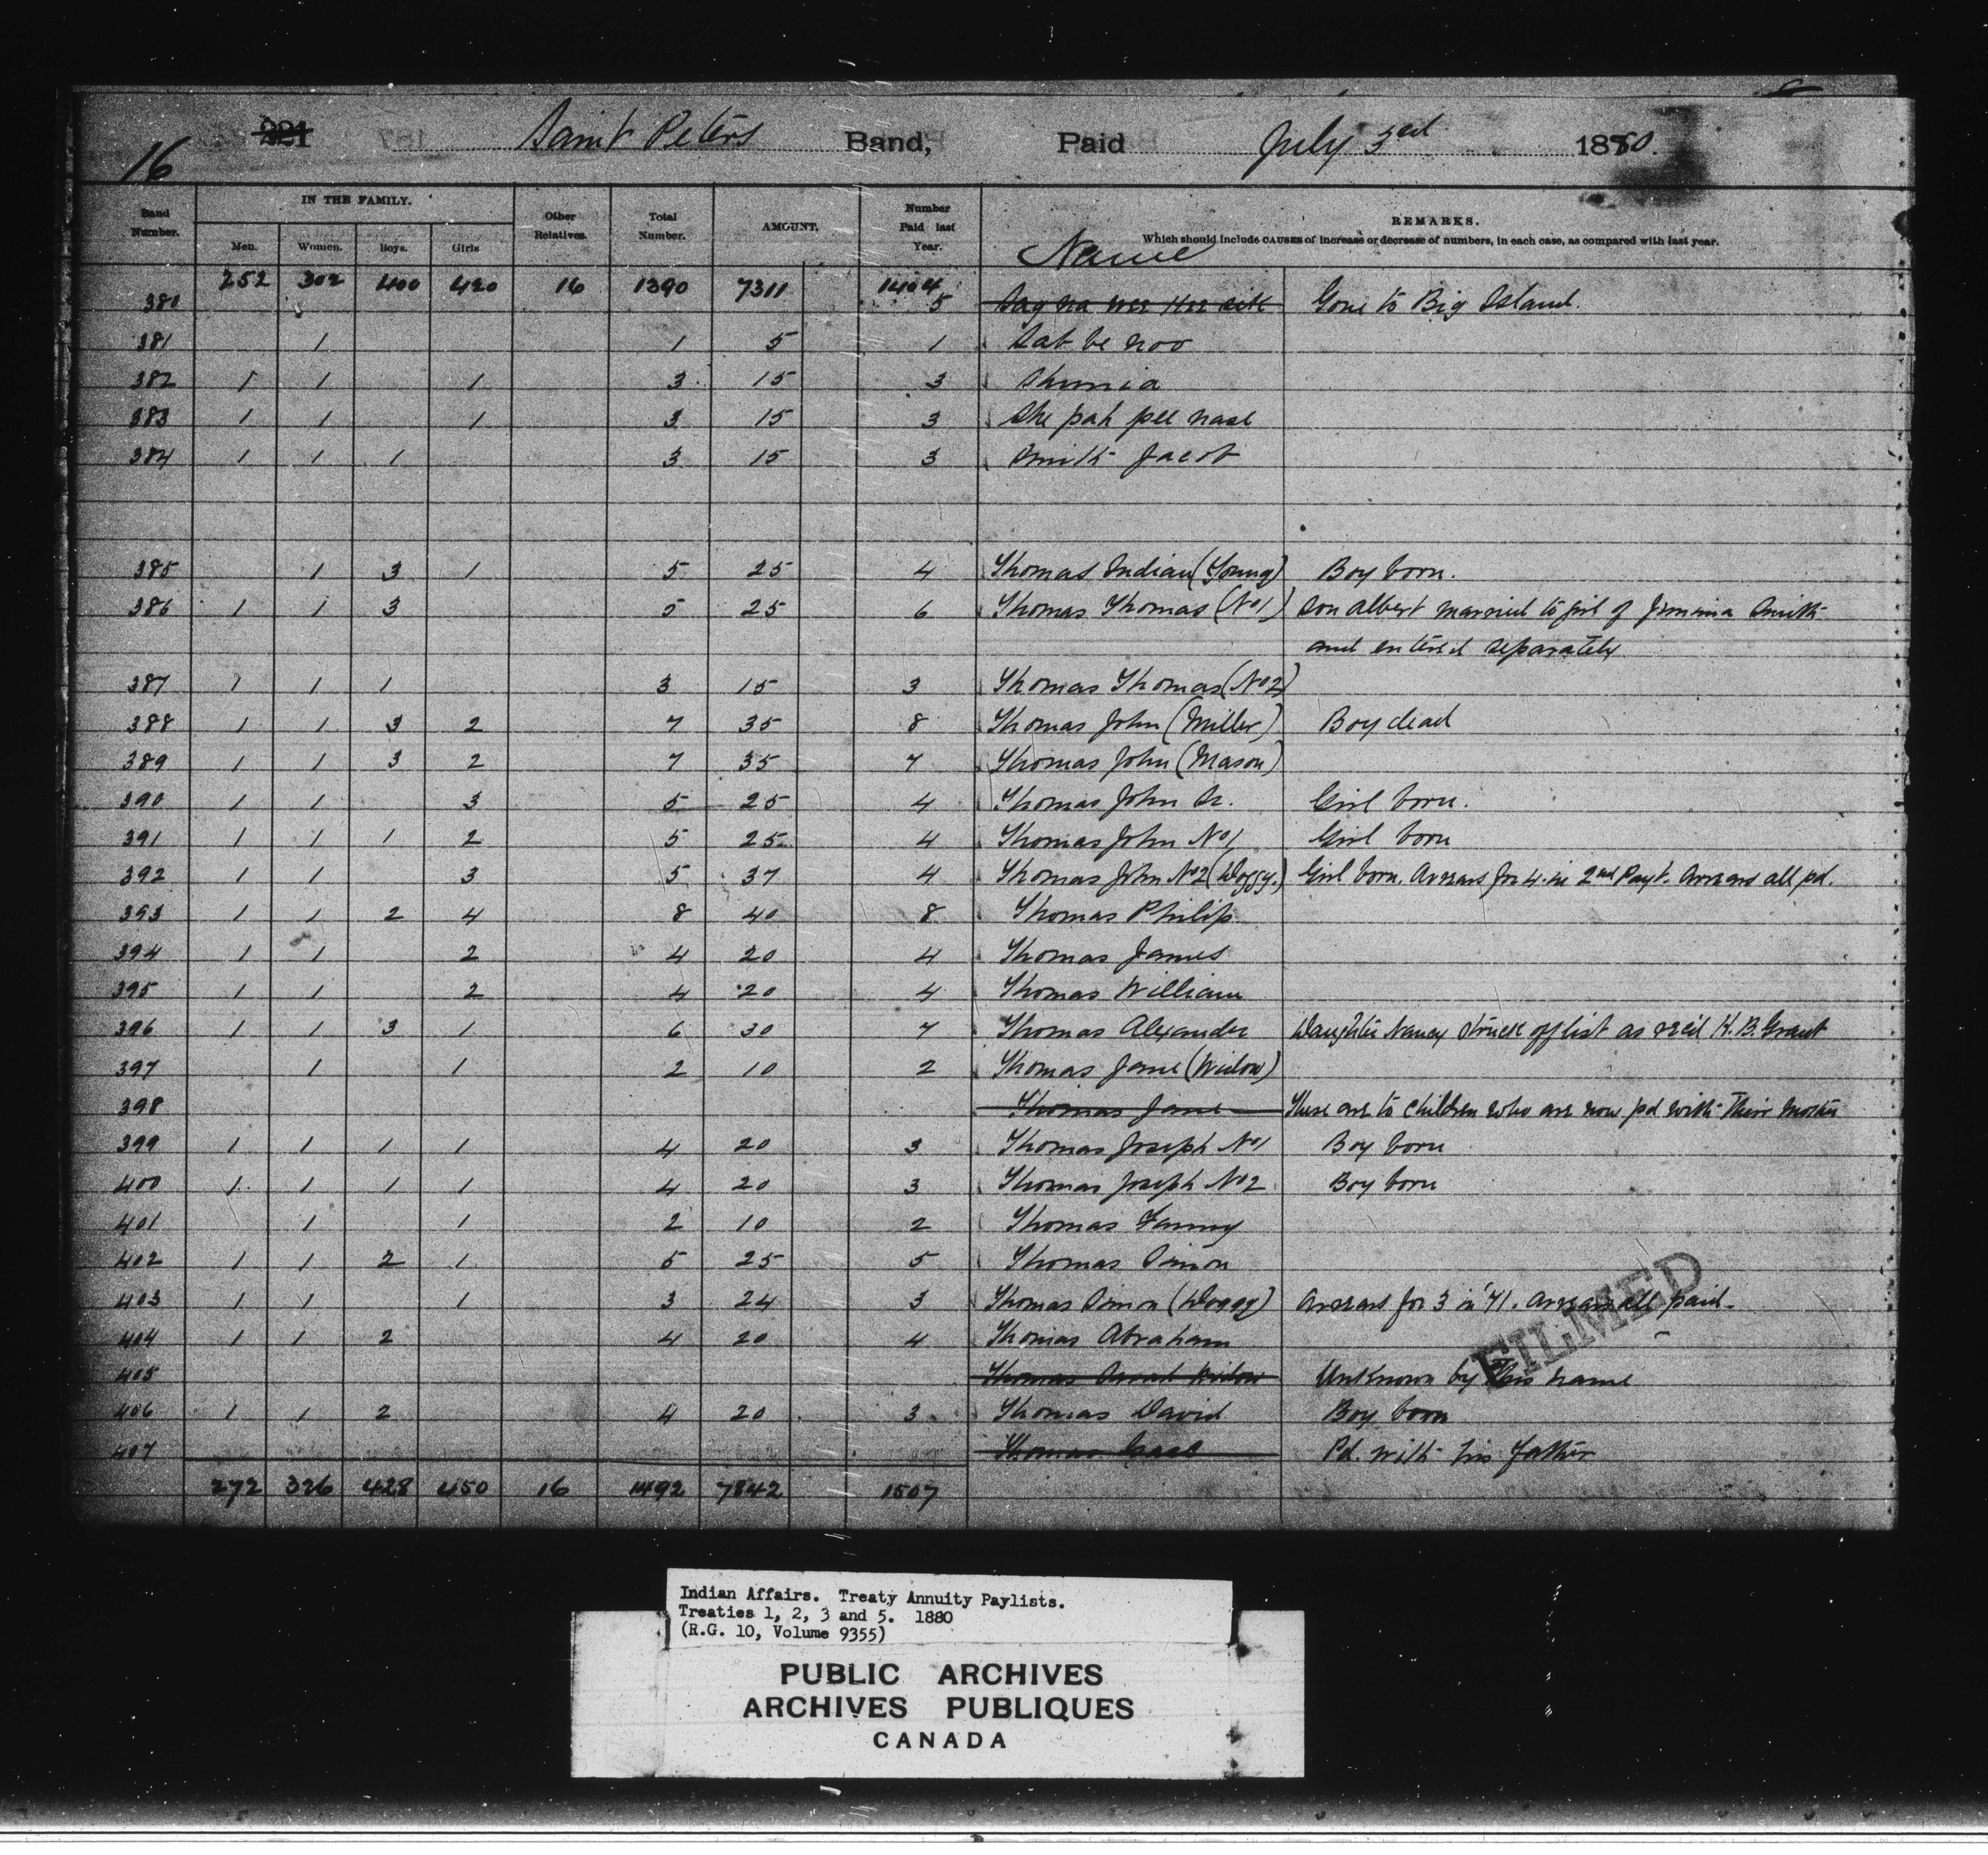 16 221 Saint Peters Band, Paid July 3rd 1880.
Band Number. IN THE FAMILY. Men. Women. Boys. Girls Other Relatives. Total Number. AMOUNT. Number Paid last Year. Name REMARKS.
Which should include CAUSES of increase or decrease of numbers, in each case, as compared with last year.
252 302 400 420 16 1390 7311 1404
380 5 Gone to Big Island.
381 1 1 5 1 Sat be noo
382 1 1 1 3 15 3 Shunia
383 1 1 1 3 15 3 She pah pee nase
384 1 1 1 3 15 3 Smith Jacob
385 1 3 1 5 25 4 Thomas Indian (Young) Boy born.
386 1 1 3 5 25 6 Thomas Thomas (No 1) Son Albert married to girl of Jemima Smith
and entered separately
387 1 1 1 3 15 3 Thomas Thomas (No 2)
388 1 1 3 2 7 35 8 Thomas John (Miller) Boy dead
389 1 1 3 2 7 35 7 Thomas John (Mason)
390 1 1 3 5 25 4 Thomas John Sr. Girl born.
391 1 1 1 2 5 25 4 Thomas John No 1 Girl born
392 1 1 3 5 37 4 Thomas John No 2 (Doggy.) Girl born. Arrears for 4 in 2nd Payt. Arrears all pd.
393 1 1 2 4 8 40 8 Thomas Philip
394 1 1 2 4 20 4 Thomas James
395 1 1 2 4 20 4 Thomas William
396 1 1 3 1 6 30 7 Thomas Alexander Daughter Nancy struck off list as rec'd H. B. Grant
397 1 1 2 10 2 Thomas Jane (Widow)
398 Thomas Jane These are to children who are now pd with their mother
399 1 1 1 1 4 20 3 Thomas Joseph No 1 Boy born
400 1 1 1 1 4 20 3 Thomas Joseph No 2 Boy born
401 1 1 2 10 2 Thomas Fanny
402 1 1 2 1 5 25 5 Thomas Simon
403 1 1 1 3 24 3 Thomas Simon (Doggy) Arrears for 3 in '71. Arrears all paid.
404 1 1 2 4 20 4 Thomas Abraham
FILMED
405 Thomas Widow Unknown by this name
406 1 1 2 4 20 3 Thomas David Boy born
407 Thomas Pd. with his father
272 326 428 450 16 1492 7842 1507
Indian Affairs. Treaty Annuity Paylists.
Treaties 1, 2, 3 and 5. 1880
(R.G. 10, Volume 9355)
PUBLIC ARCHIVES
ARCHIVES PUBLIQUES
CANADA